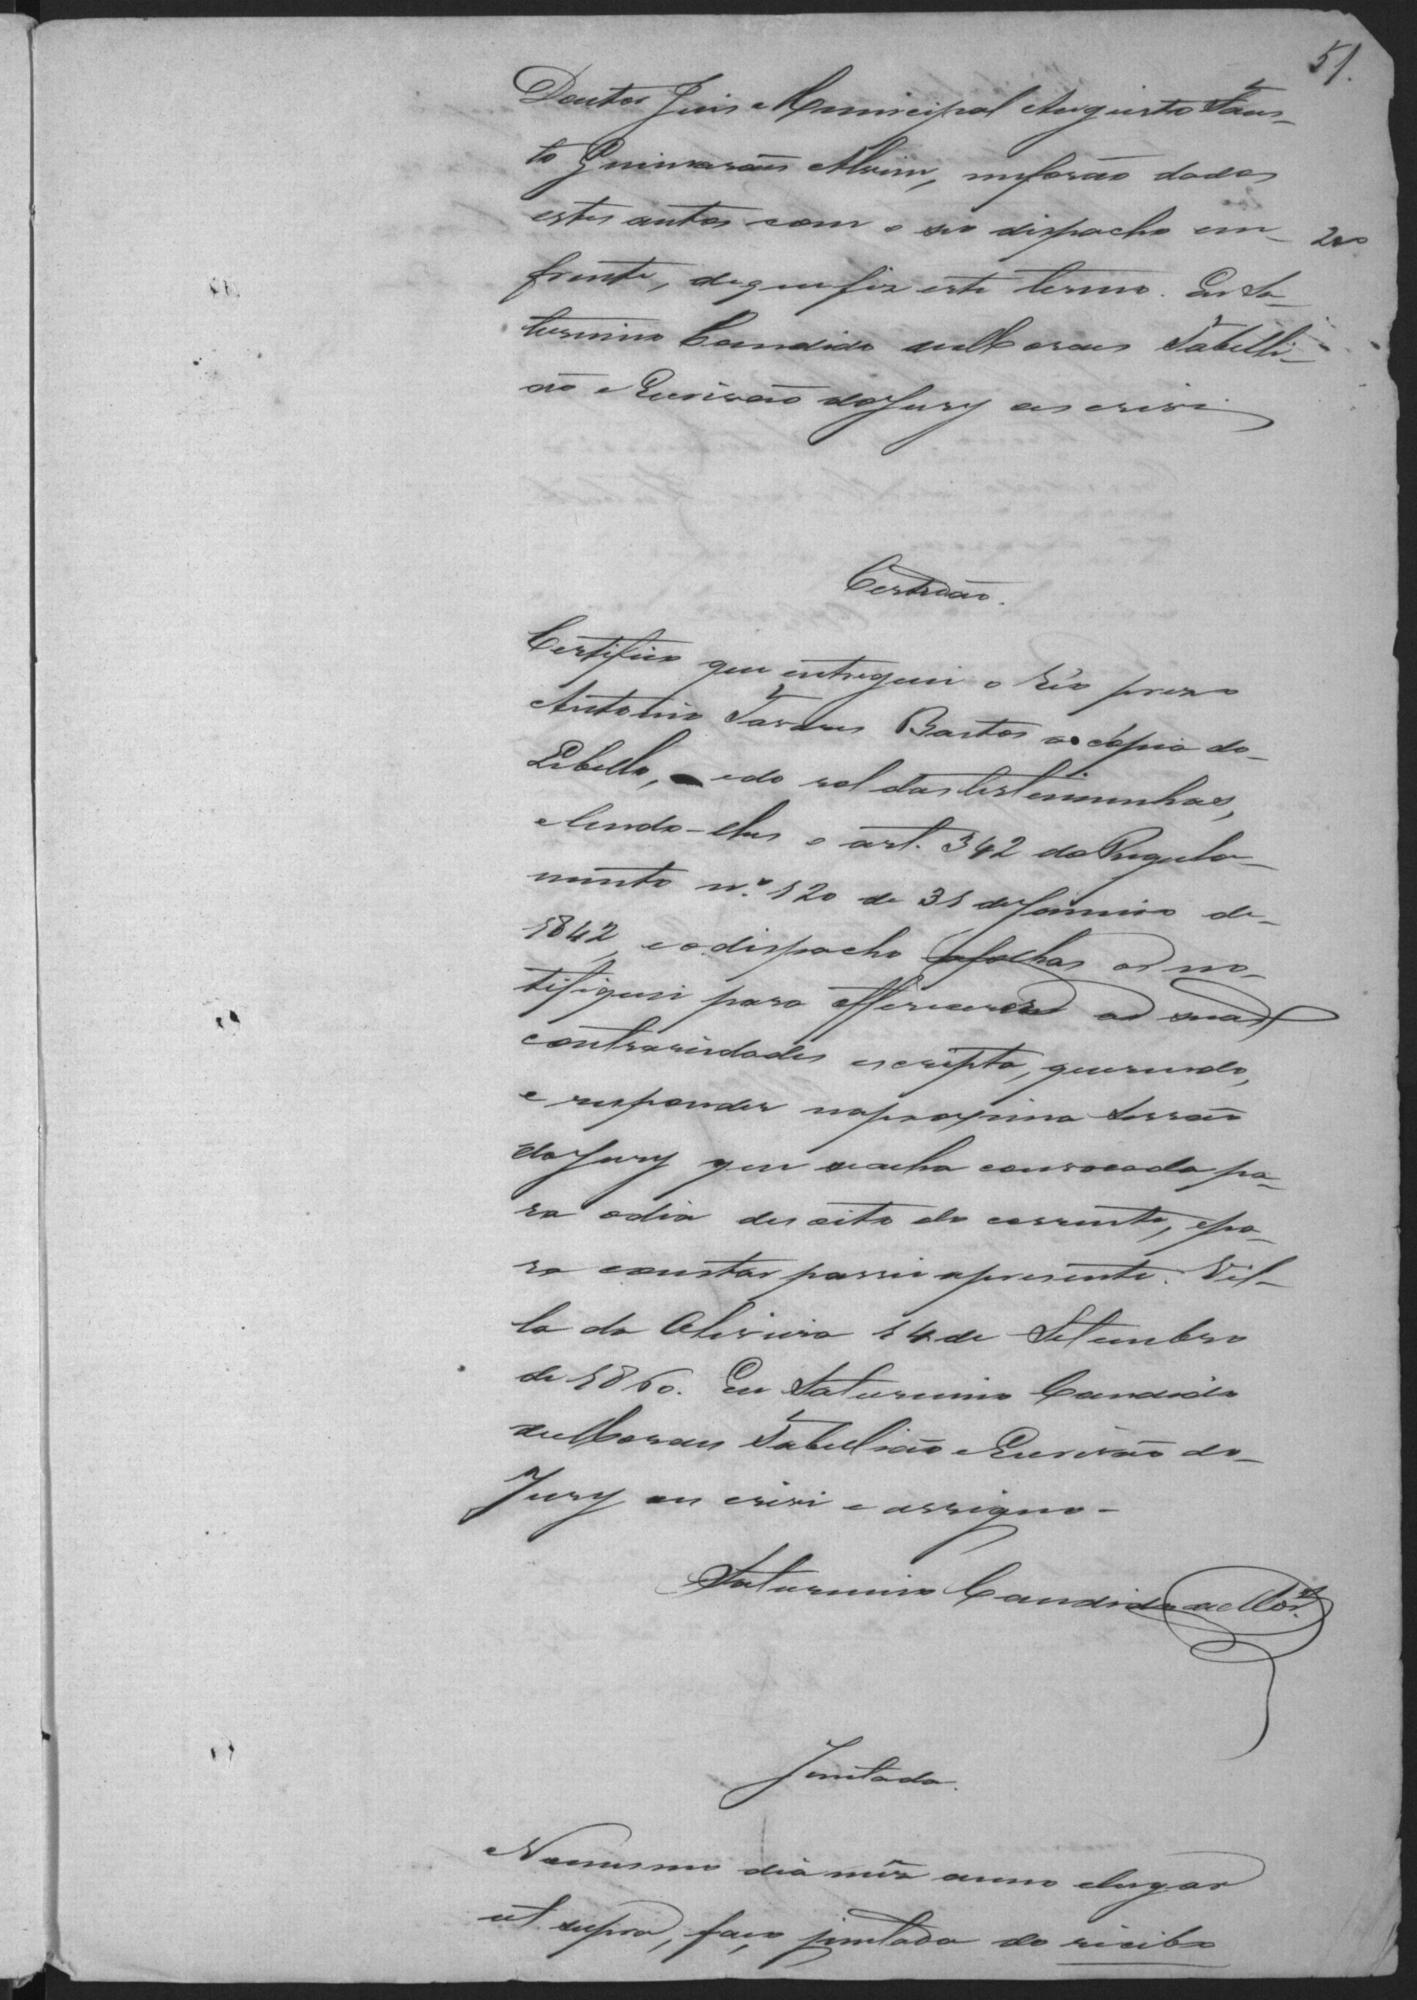 51.
Doutor Juis Municipal Augusto Faus-
to Guimarães Alvim, me forão dados
estes autos com o seo dispacho em
200
frente, de que fiz este termo. Eu Sa-
turnino Candido de Moraes Tabelli-
ão e Escrivão do Jury as escrivi
Certidão.
Certifico que entreguei o Réo preso
Antonio Tavares Bastos a cópia do
Libello, e do rol das testemunhas,
e lendo-lhes o art. 342 do Regula-
mento n.º 120 de 31 de Janeiro de
1842, e o dispacho a folhas os no-
tifiquei para offerecerem as suas
contrariedades escripta, querendo,
e responder na proxima sessão
do Jury que se acha convocada pa-
ra o dia desoito do corrente, e pa-
ra constar passei a presente. Vil-
la da Oliveira 14 de Setembro
de 1860. Eu Saturnino Candido
de Moraes Tabelião e Escrivão do
Jury as escrivi e assigno-
Saturnino Candido de Mor.s
Juntada.
No mesmo dia mez anno e lugar
ut supra, faço juntada do recibo